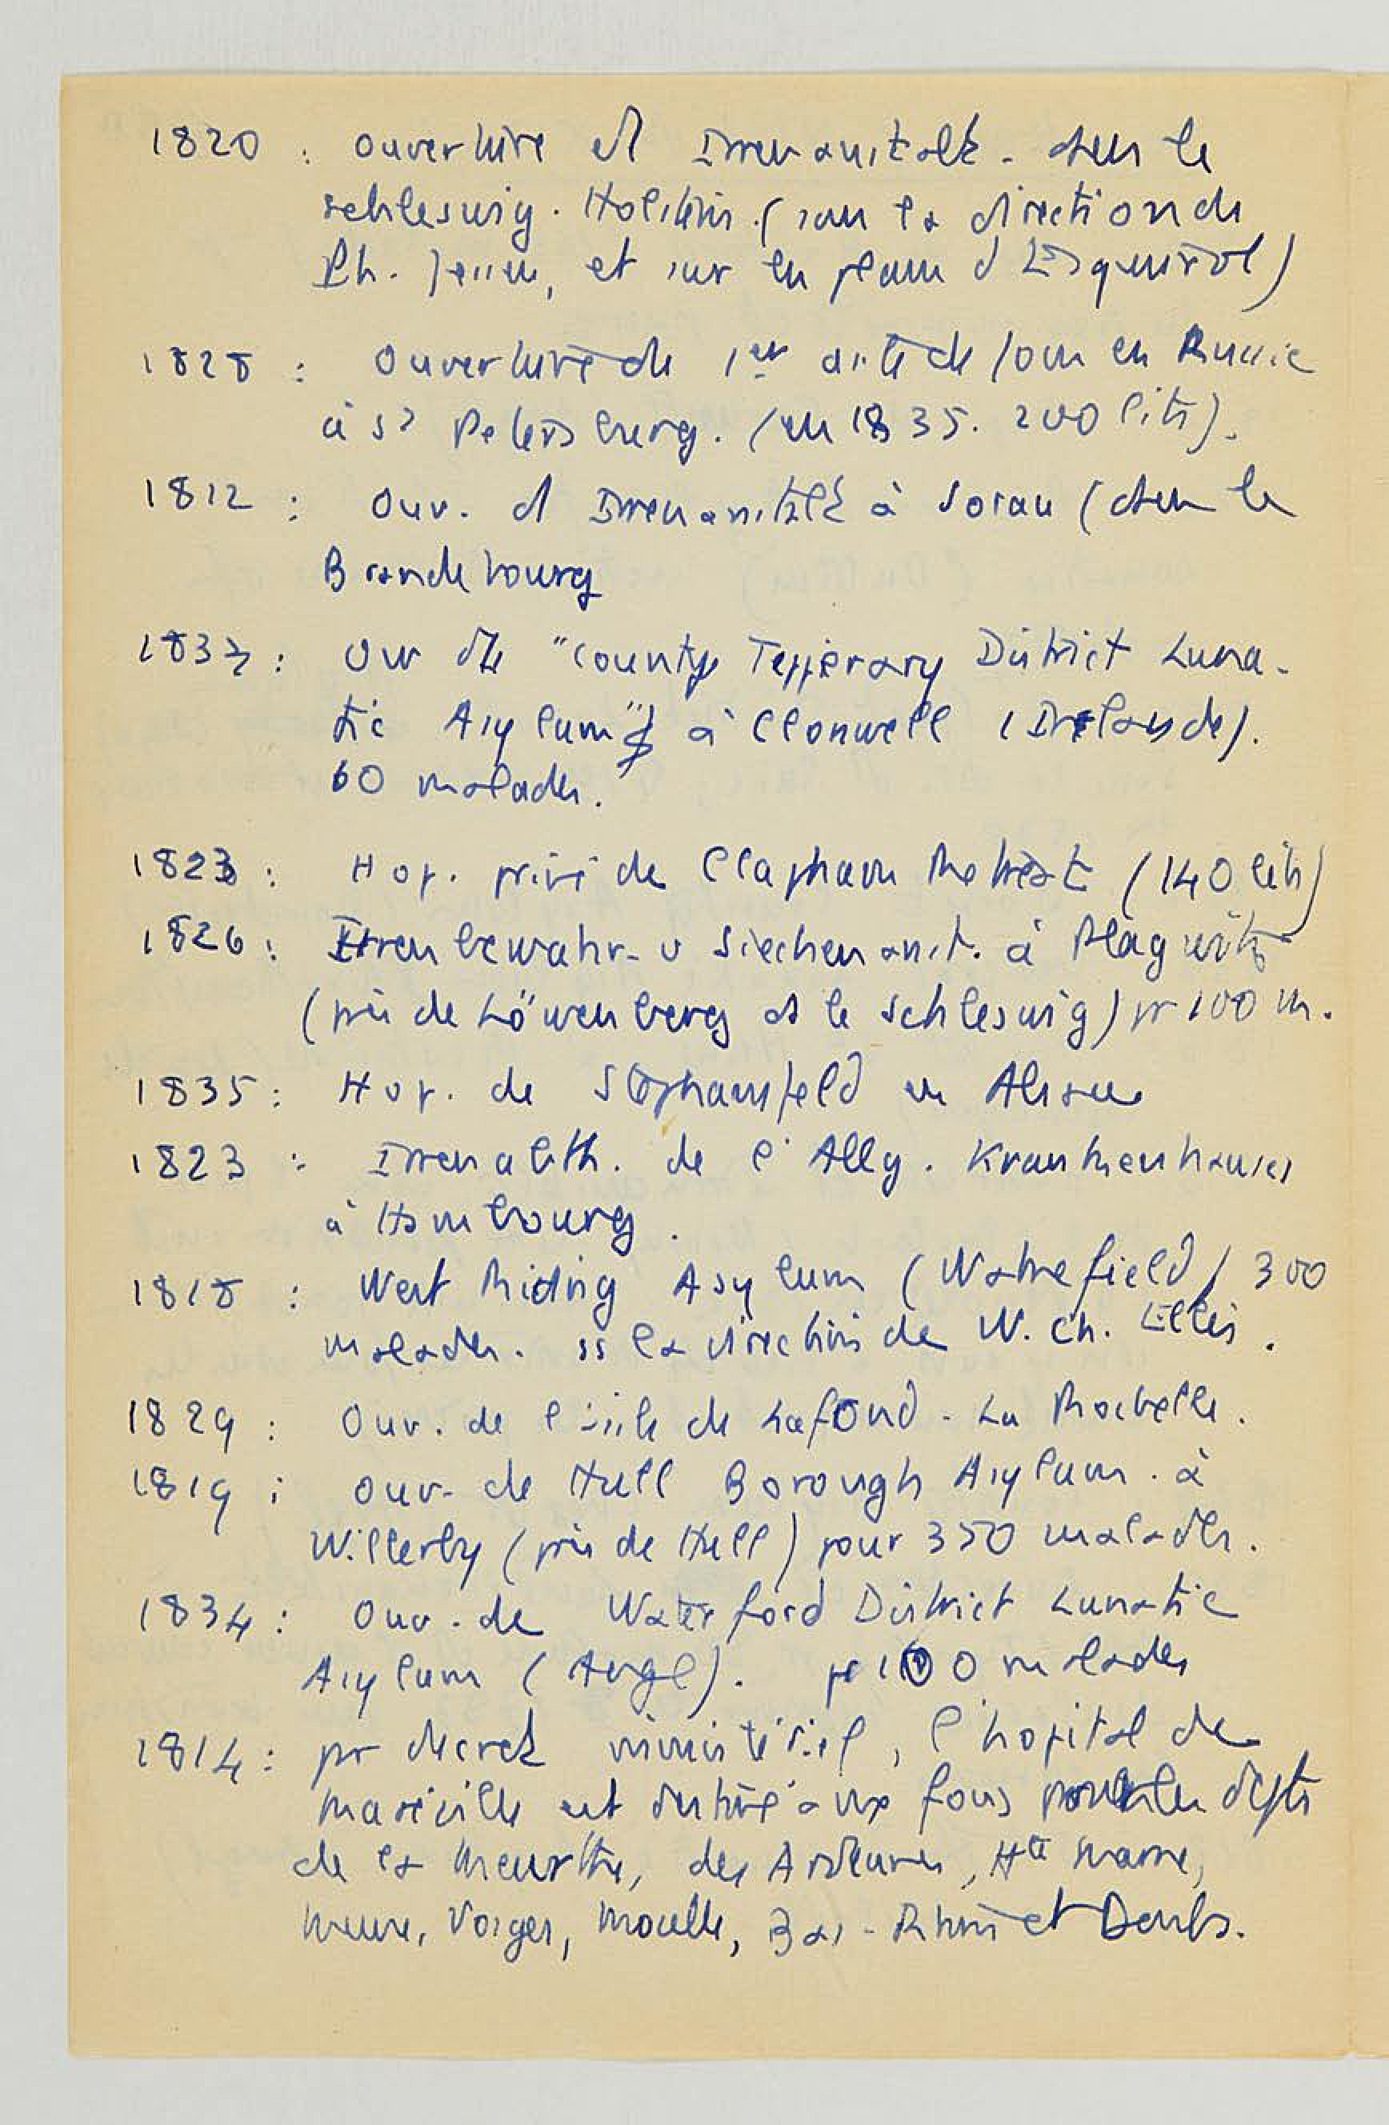 1820 : Ouverture d'Irrenanstalt. dans le
Schleswig. Holstein. (sous la direction de
Ph. Jessen, et sur un plan d'Esquirol)
1828 : Ouverture du 1er asile de fous en Russie
à St Petersburg. (en 1835. 200 lits).
1812 : Ouv. d'Irrenanstalt à Sorau (dans le
Brandebourg
1832 : Ouv du "County Tipperary District Luna-
tic Asylum" à Clonwell (Irelande).
60 malades.
1823 : Hop. privé de Clapham Retreat (140 lits)
1826 : Irrenbewahr- u Siechenanst. à Plagwitz
(près de Löwenberg ds le Schleswig) pr 100 m.
1835 : Hop. de Stephansfeld en Alsace
1823 : Irrenabth. de l'Allg. Krankenhauses
à Hambourg.
1818 : West Riding Asylum (Wakefield) 300
malades. ss la direction de W. Ch. Ellis.
1829 : Ouv. de l'asile de Lafond - La Rochelle.
1819 : Ouv. de Hull Borough Asylum. à
Willerby (près de Hull) pour 350 malades.
1834 : Ouv. de Waterford District Lunatic
Asylum (Angl). pr 100 malades
1814 : pr decret ministériel, l'hopital de
Maréville est destiné aux fous pour les depts
de la Meurthe, des Ardennes, Hte Marne,
Meuse, Vosges, Moselle, Bas-Rhin et Doubs.